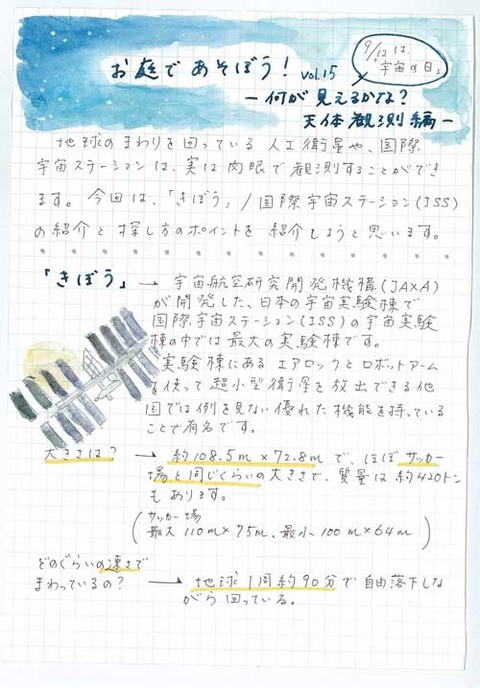 お庭であそぼう! vol.15
9/12は、
「宇宙の日」
ー何が見えるかな?
天体観測編ー
地球のまわりを回っている人工衛星や、国際
宇宙ステーションは、実は肉眼で観測することができ
ます。今回は、「きぼう」/国際宇宙ステーション(ISS)
の紹介と探し方のポイントを紹介しようと思います。
「きぼう」→ 宇宙航空研究開発機構(JAXA)
が開発した、日本の宇宙実験棟で
国際宇宙ステーション(ISS)の宇宙実験
棟の中では最大の実験棟です。
実験棟にあるエアロックとロボットアーム
を使って超小型衛星を放出できる他
国では例を見ない優れた機能を持っている
ことで有名です。
大きさは? → 約108.5m×72.8mで、ほぼサッカー
場と同じくらいの大きさで、質量は約420トン
もあります。
(サッカー場
最大 110m×75m、最小 100m×64m)
どのぐらいの速さで
まわっているの? → 地球1周約90分で自由落下しな
がら回っている。